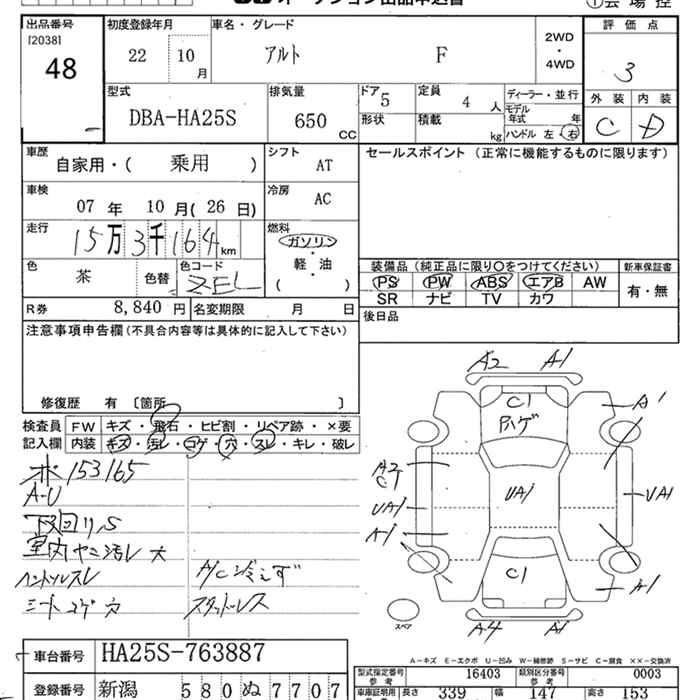 オークション出品申込書
①会場控
出品番号 初度登録年月 車名・グレード 評価点
[2038]
48 22 10月 アルト F 2WD・4WD 3
型式 排気量 ドア 定員 ディーラー・並行 外装 内装
DBA-HA25S 650 CC 5 4人 モデル年式 年 C D
形状 積載 kg ハンドル 左 右
車歴 自家用・( 乗用 ) シフト AT セールスポイント (正常に機能するものに限ります)
車検 07年 10月(26日) 冷房 AC
走行 15万3千164km 燃料 ガソリン・軽・油 ( )
色 茶 色替 色コード ZEL
装備品 (純正品に限り○をつけてください) 新車保証書
PS PW ABS エアB AW 有・無
SR ナビ TV カワ
R券 8,840円 名変期限 月 日 後日品
注意事項申告欄(不具合内容等は具体的に記入して下さい)
修復歴 有 〔箇所 〕
検査員 FW キズ・飛石・ヒビ割・リペア跡・×要
記入欄 内装 キズ・汚レ・コゲ・穴・スレ・キレ・破レ
メーター 153165
A-U
下回りS
室内ヤニ汚レ大
ハンドルスレ A/C冷えず
シートコゲ穴 スタッドレス
A2 A1
C1
ハゲ
A1
A2
UA1 UA1 UA1
A1
C1
A1
スペア
A4 A1
A-キズ E-エクボ U-凹み W-補修跡 S-サビ C-腐食 XX-交換済
車台番号 HA25S-763887
型式指定番号 参考 16403 類別区分番号 参考 0003
登録番号 新潟 580 ぬ 7707
車庫証明用 参考 長さ 339 幅 147 高さ 153